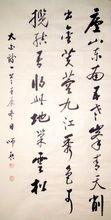 廬山東南五老峯青天削
出金芙蓉九江秀色可
攬結吾將此地巢雲松
太白詩